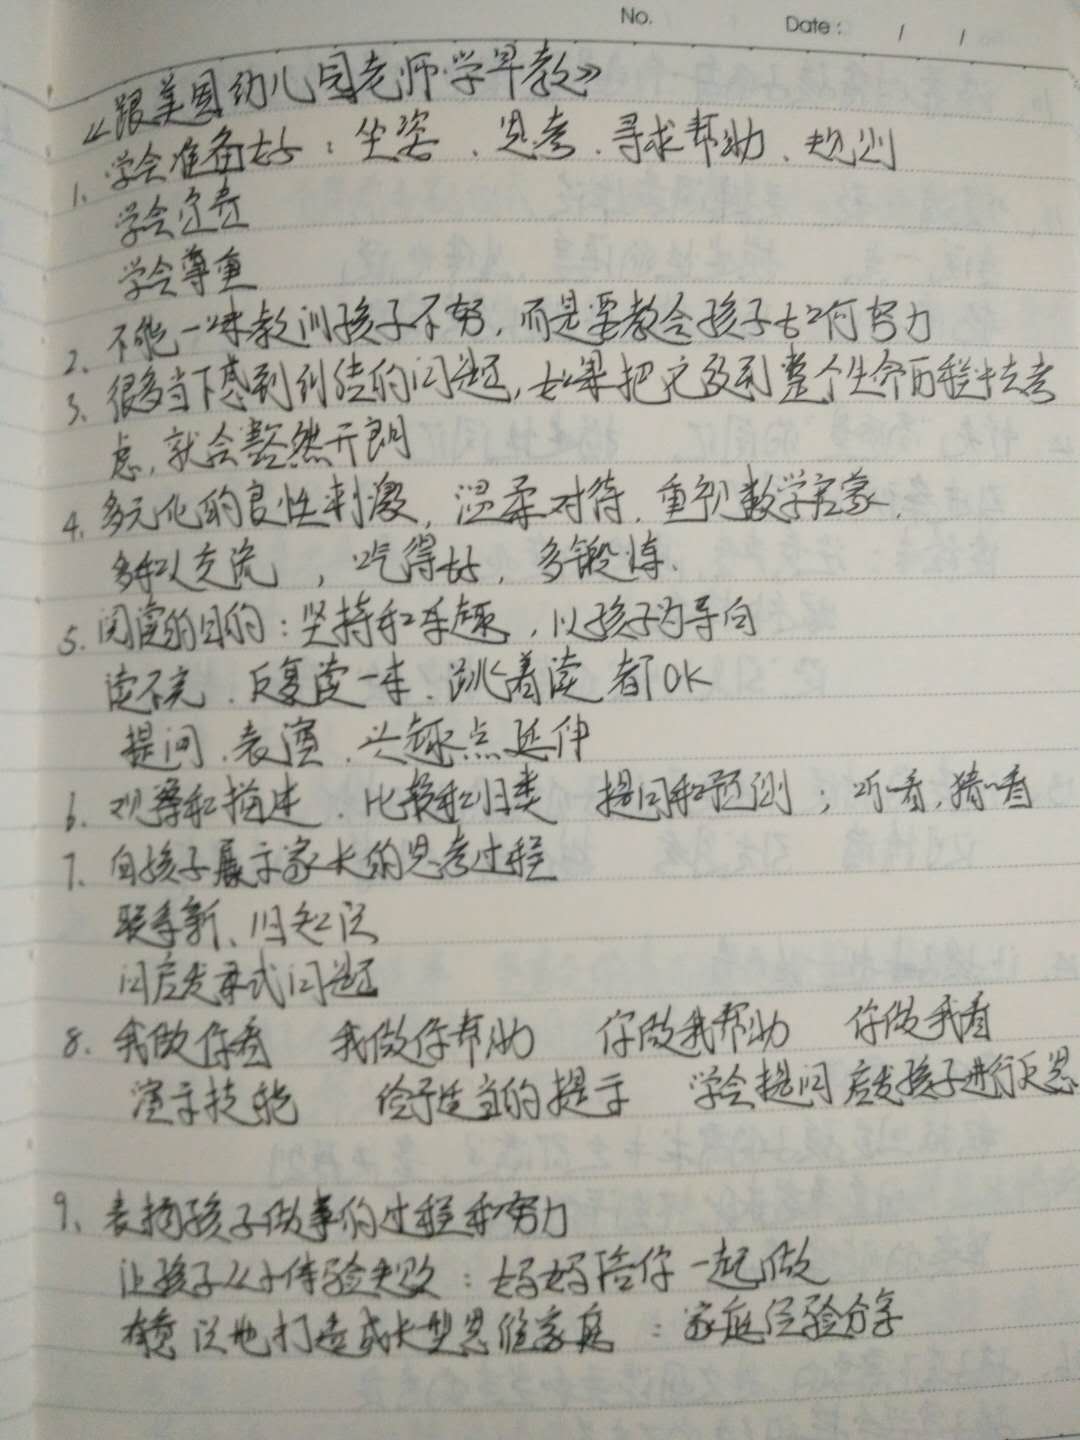 No.
Date: / /
《跟美国幼儿园老师学早教》
1、学会准备好：坐姿、思考、寻求帮助、规则
学会负责
学会尊重
2、不能一味教训孩子不努，而是要教会孩子如何努力
3、很多当下感到纠结的问题，如果把它放到整个生命历程中去考
虑，就会豁然开朗
4、多元化的良性刺激，温柔对待，重视数学启蒙，
多和人交流，吃得好，多锻炼、
5、阅读的目的：坚持和乐趣，以孩子为导向
读不完、反复读一本、跳着读 都OK
提问、表演、兴趣点延伸
6、观察和描述、比较和归类 提问和预测；听看，猜看
7、向孩子展示家长的思考过程
联系新、旧知识
问启发录式问题
8、我做你看 我做你帮助 你做我帮助 你做我看
演示技能 给予适当的提示 学会提问 启发孩子进行反思
9、表扬孩子做事的过程和努力
让孩子从小体验失败：妈妈陪你一起做
有意识地打造成长型思维家庭：家庭经验分享